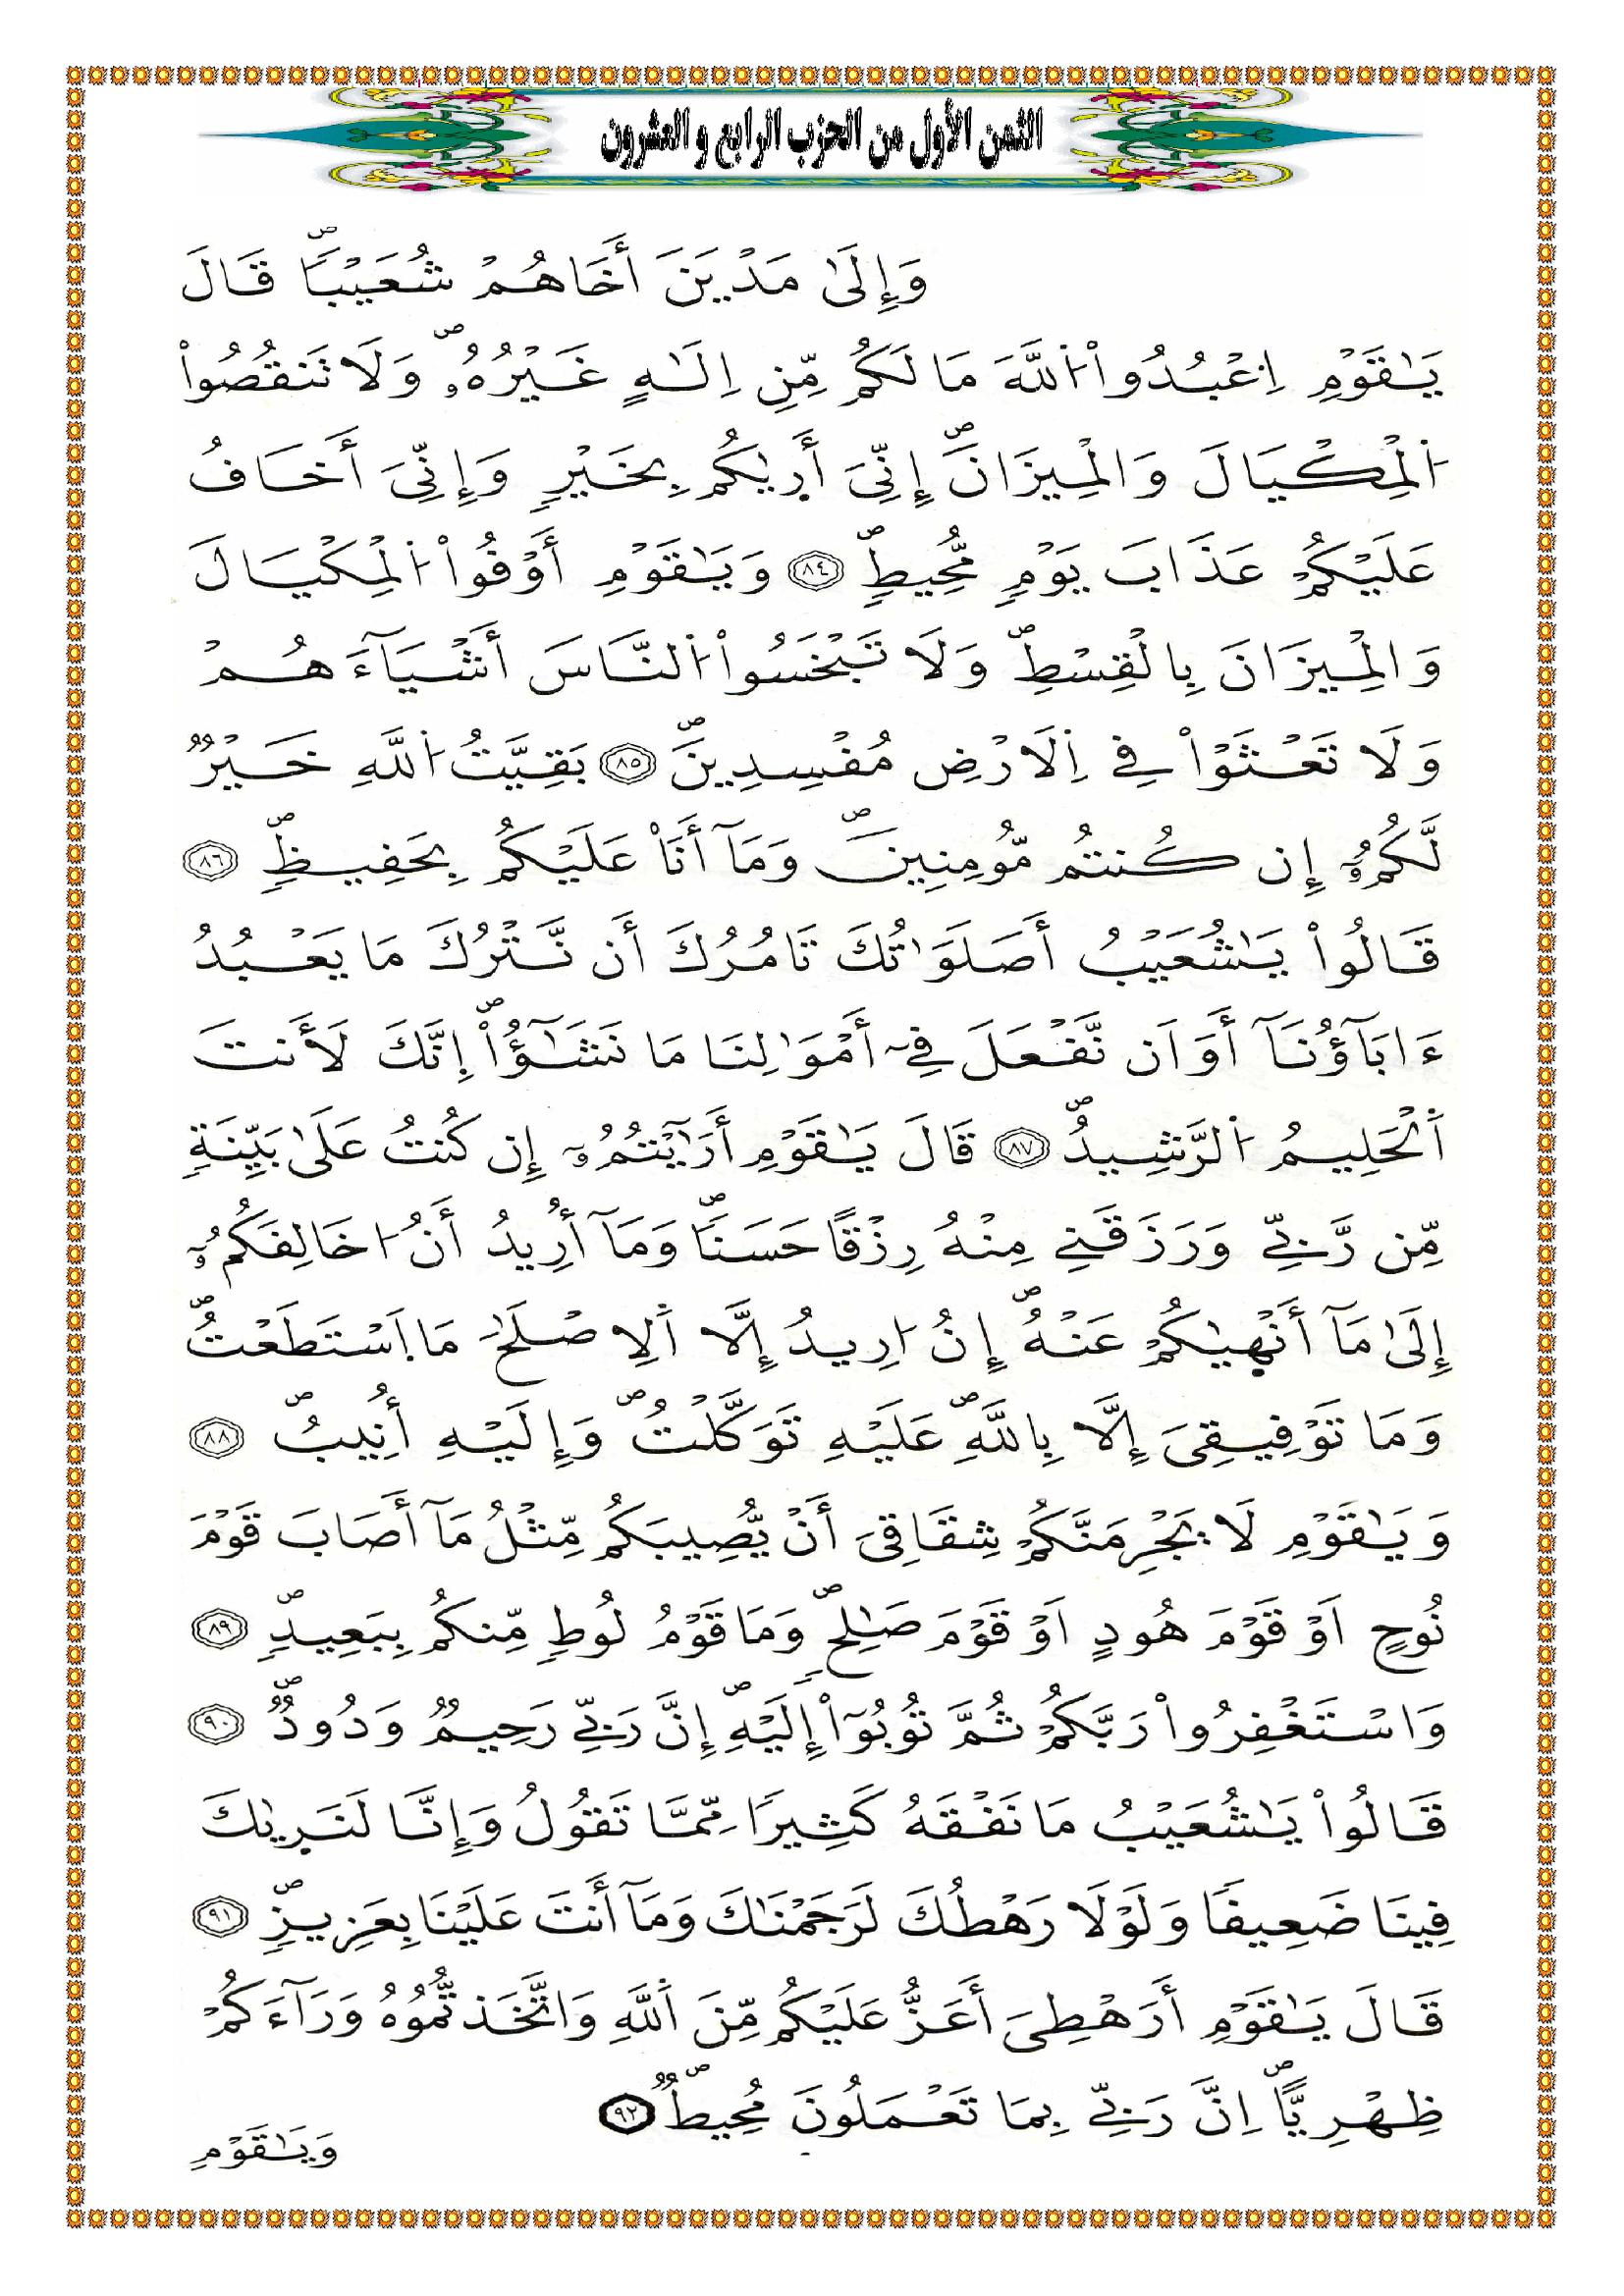 الثمن الأول من الحزب الرابع و العشرون
وَإِلَىٰ مَدْيَنَ أَخَاهُمْ شُعَيْبٗاۖ قَالَ
يَٰقَوْمِ اِ۟عْبُدُواْ اُ۬للَّهَ مَا لَكُم مِّنِ اِلَٰهٍ غَيْرُهُۥۖ وَلَا تَنقُصُواْ
اُ۬لْمِكْيَالَ وَالْمِيزَانَۖ إِنِّيَ أَر۪يٰكُم بِخَيْرٖ وَإِنِّيَ أَخَافُ
عَلَيْكُمْ عَذَابَ يَوْمٖ مُّحِيطٖۖ ٨٤ وَيَٰقَوْمِ أَوْفُواْ اُ۬لْمِكْيَالَ
وَالْمِيزَانَ بِالْقِسْطِۖ وَلَا تَبْخَسُواْ اُ۬لنَّاسَ أَشْيَآءَهُمْ
وَلَا تَعْثَوْاْ فِے اِ۬لَارْضِ مُفْسِدِينَۖ ٨٥ بَقِيَّتُ اُ۬للَّهِ خَيْرٞ
لَّكُمُۥٓ إِن كُنتُم مُّومِنِينَۖ وَمَآ أَنَا۠ عَلَيْكُم بِحَفِيظٖۖ ٨٦
قَالُواْ يَٰشُعَيْبُ أَصَلَوَٰتُكَ تَامُرُكَ أَن نَّتْرُكَ مَا يَعْبُدُ
ءَابَآؤُنَآ أَوَ اَن نَّفْعَلَ فِےٓ أَمْوَٰلِنَا مَا نَشَٰٓؤُاْۖ اِنَّكَ لَأَنتَ
اَ۬لْحَلِيمُ اُ۬لرَّشِيدُۖ ٨٧ قَالَ يَٰقَوْمِ أَرَٰٓيْتُمُۥٓ إِن كُنتُ عَلَىٰ بَيِّنَةٖ
مِّن رَّبِّے وَرَزَقَنِے مِنْهُ رِزْقاً حَسَنٗاۖ وَمَآ أُرِيدُ أَنُ ا۟خَالِفَكُمُۥٓ
إِلَىٰ مَآ أَنْه۪يٰكُمْ عَنْهُۖ إِنُ ا۟رِيدُ إِلَّا اَ۬لِاصْلَٰحَ مَا اَ۪سْتَطَعْتُۖ
وَمَا تَوْفِيقِيَ إِلَّا بِاللَّهِۖ عَلَيْهِ تَوَكَّلْتُۖ وَإِلَيْهِ أُنِيبُۖ ٨٨
وَيَٰقَوْمِ لَا يَجْرِمَنَّكُمْ شِقَاقِيَ أَنْ يُّصِيبَكُم مِّثْلُ مَآ أَصَابَ قَوْمَ
نُوحٍ اَوْ قَوْمَ هُودٍ اَوْ قَوْمَ صَٰلِحٖۖ وَمَا قَوْمُ لُوطٖ مِّنكُم بِبَعِيدٖۖ ٨٩
وَاسْتَغْفِرُواْ رَبَّكُمْ ثُمَّ تُوبُوٓاْ إِلَيْهِۖ إِنَّ رَبِّے رَحِيمٞ وَدُودٞۖ ٩٠
قَالُواْ يَٰشُعَيْبُ مَا نَفْقَهُ كَثِيرٗا مِّمَّا تَقُولُ وَإِنَّا لَنَر۪يٰكَ
فِينَا ضَعِيفٗا وَلَوْلَا رَهْطُكَ لَرَجَمْنَٰكَ وَمَآ أَنتَ عَلَيْنَا بِعَزِيزٖۖ ٩١
قَالَ يَٰقَوْمِ أَرَهْطِيَ أَعَزُّ عَلَيْكُم مِّنَ اَ۬للَّهِ وَاتَّخَذتُّمُوهُ وَرَآءَكُمْ
ظِهْرِيّاًۖ اِنَّ رَبِّے بِمَا تَعْمَلُونَ مُحِيطٞۖ ٩٢
وَيَٰقَوْمِ